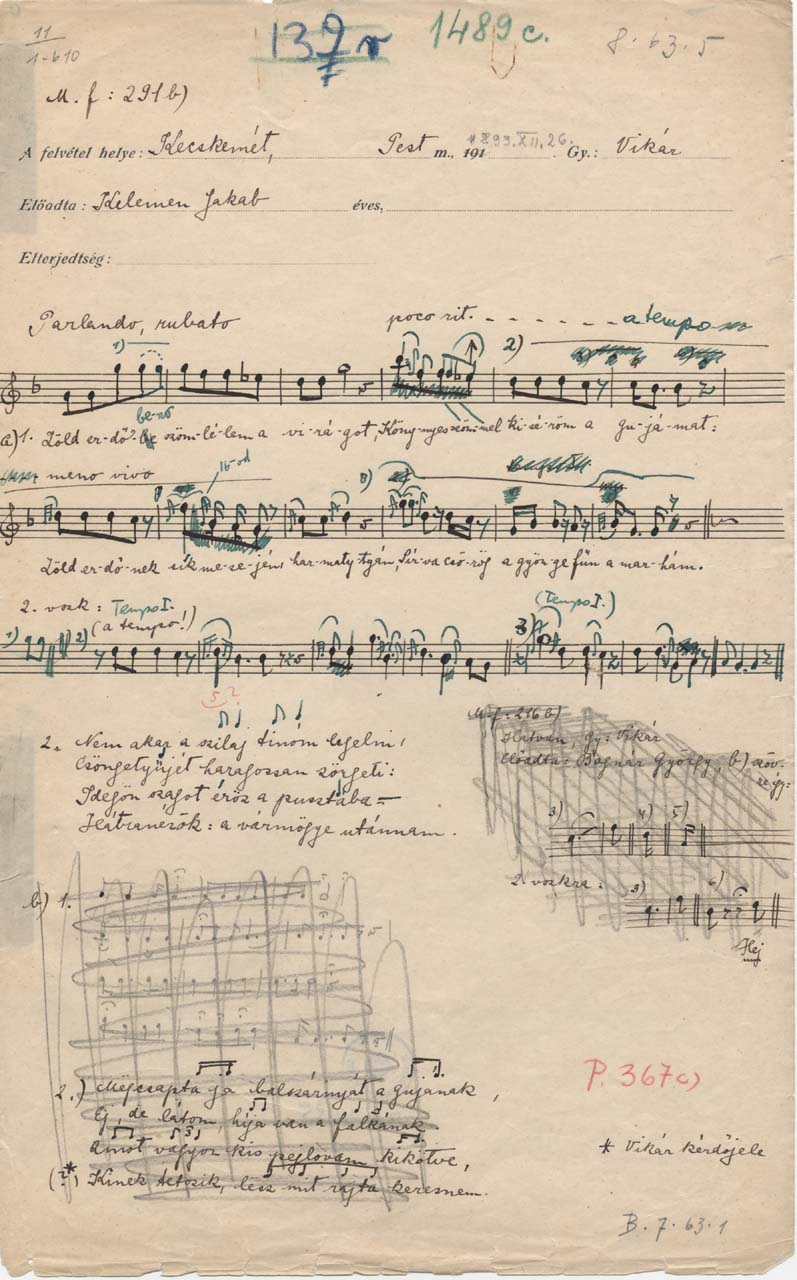 11
1-610
139r
1489 c.
8. 63. 5
M. f: 291b)
A felvétel helye: Kecskemét, Pest m., 191 1893. XII. 26. Gy.: Vikár
Előadta: Kelemen Jakab éves,
Elterjedtség:
Parlando, rubato poco rit. - - - - - - a tempo
1) 2)
be-ső
a) 1. Zöld er-dő szöm-lé-lem a vi-rá-got, Köny-nyes szöm-mel ki-sé-röm a gu-já-mat:
meno vivo 16-od 3)
Zöld er-dő-nek sík me-ze-jén har-maty-tyán, Sír-va cső-rög a gyön-ge fűn a mar-hám.
2. vszk: Tempo I. (Tempo I.)
(a tempo!)
1) 2) 3)
5?
2. Nem akar a szilaj tinóm legelni,
Csöngetyűjét haragossan zörgeti:
Idegön szagot érőz a pusztába =
Hátranézök: a vármögye utánnam.
M. f: 216 b)
Hatvan, gy: Vikár
Előadta: Bognár György, b)
3) 4) 5)
2. vszkra: 3) 6)
Hej
b) 1.
2.) Mejcsapta ja balszárnyát a gujának,
Ej, de látom, híja van a falkának.
Amot vagyon kis pejlovam, kikötve,
(?*) Kinek tetszik, lesz mit rajta keresnem.
P. 367c)
* Vikár kérdőjele
B. 7. 63. 1